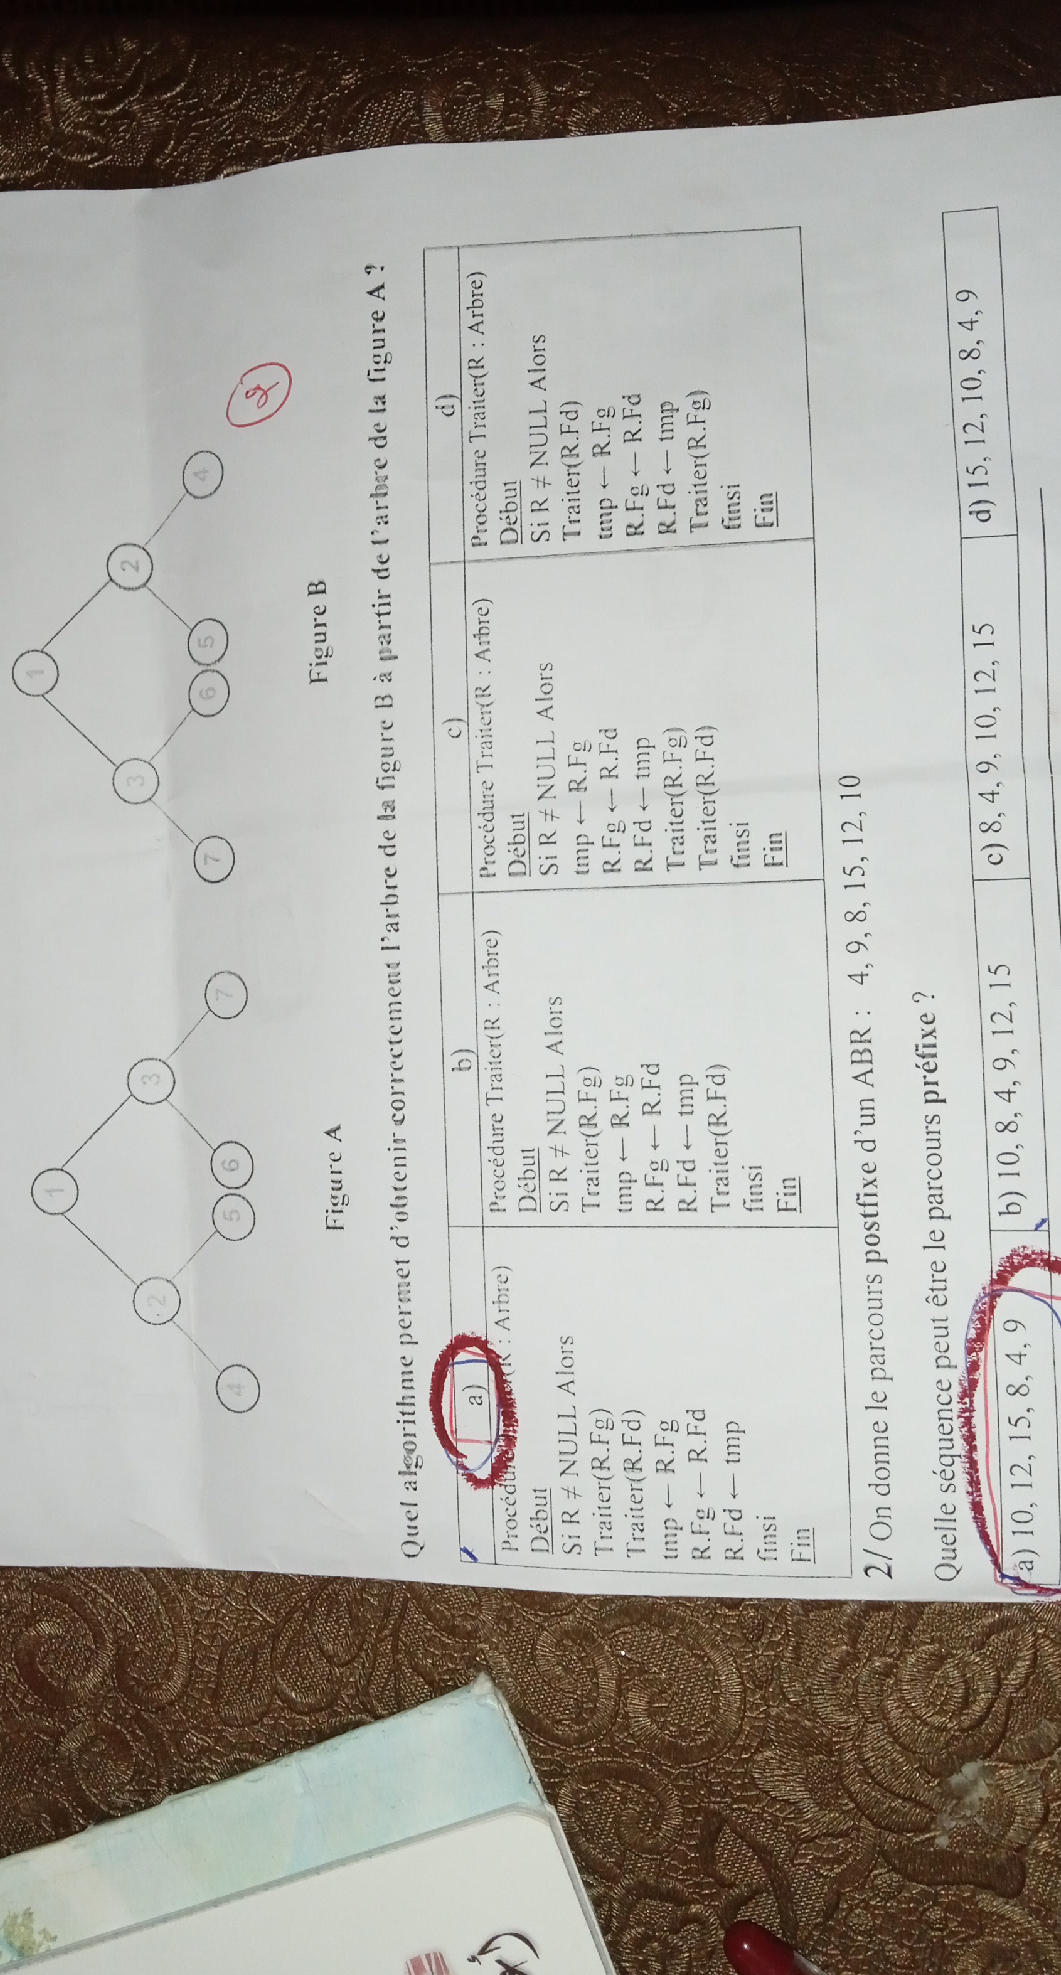 1
2
3
4
5
6
7
Figure A
1
3
2
7
6
5
4
Figure B
2
Quel algorithme permet d'obtenir correctement l'arbre de la figure B à partir de l'arbre de la figure A ?
a)
Procédure Traiter(R : Arbre)
Début
Si R ≠ NULL Alors
Traiter(R.Fg)
Traiter(R.Fd)
tmp ← R.Fg
R.Fg ← R.Fd
R.Fd ← tmp
finsi
Fin
b)
Procédure Traiter(R : Arbre)
Début
Si R ≠ NULL Alors
Traiter(R.Fg)
tmp ← R.Fg
R.Fg ← R.Fd
R.Fd ← tmp
Traiter(R.Fd)
finsi
Fin
c)
Procédure Traiter(R : Arbre)
Début
Si R ≠ NULL Alors
tmp ← R.Fg
R.Fg ← R.Fd
R.Fd ← tmp
Traiter(R.Fg)
Traiter(R.Fd)
finsi
Fin
d)
Procédure Traiter(R : Arbre)
Début
Si R ≠ NULL Alors
Traiter(R.Fd)
tmp ← R.Fg
R.Fg ← R.Fd
R.Fd ← tmp
Traiter(R.Fg)
finsi
Fin
2/ On donne le parcours postfixe d'un ABR : 4, 9, 8, 15, 12, 10
Quelle séquence peut être le parcours préfixe ?
a) 10, 12, 15, 8, 4, 9
b) 10, 8, 4, 9, 12, 15
c) 8, 4, 9, 10, 12, 15
d) 15, 12, 10, 8, 4, 9